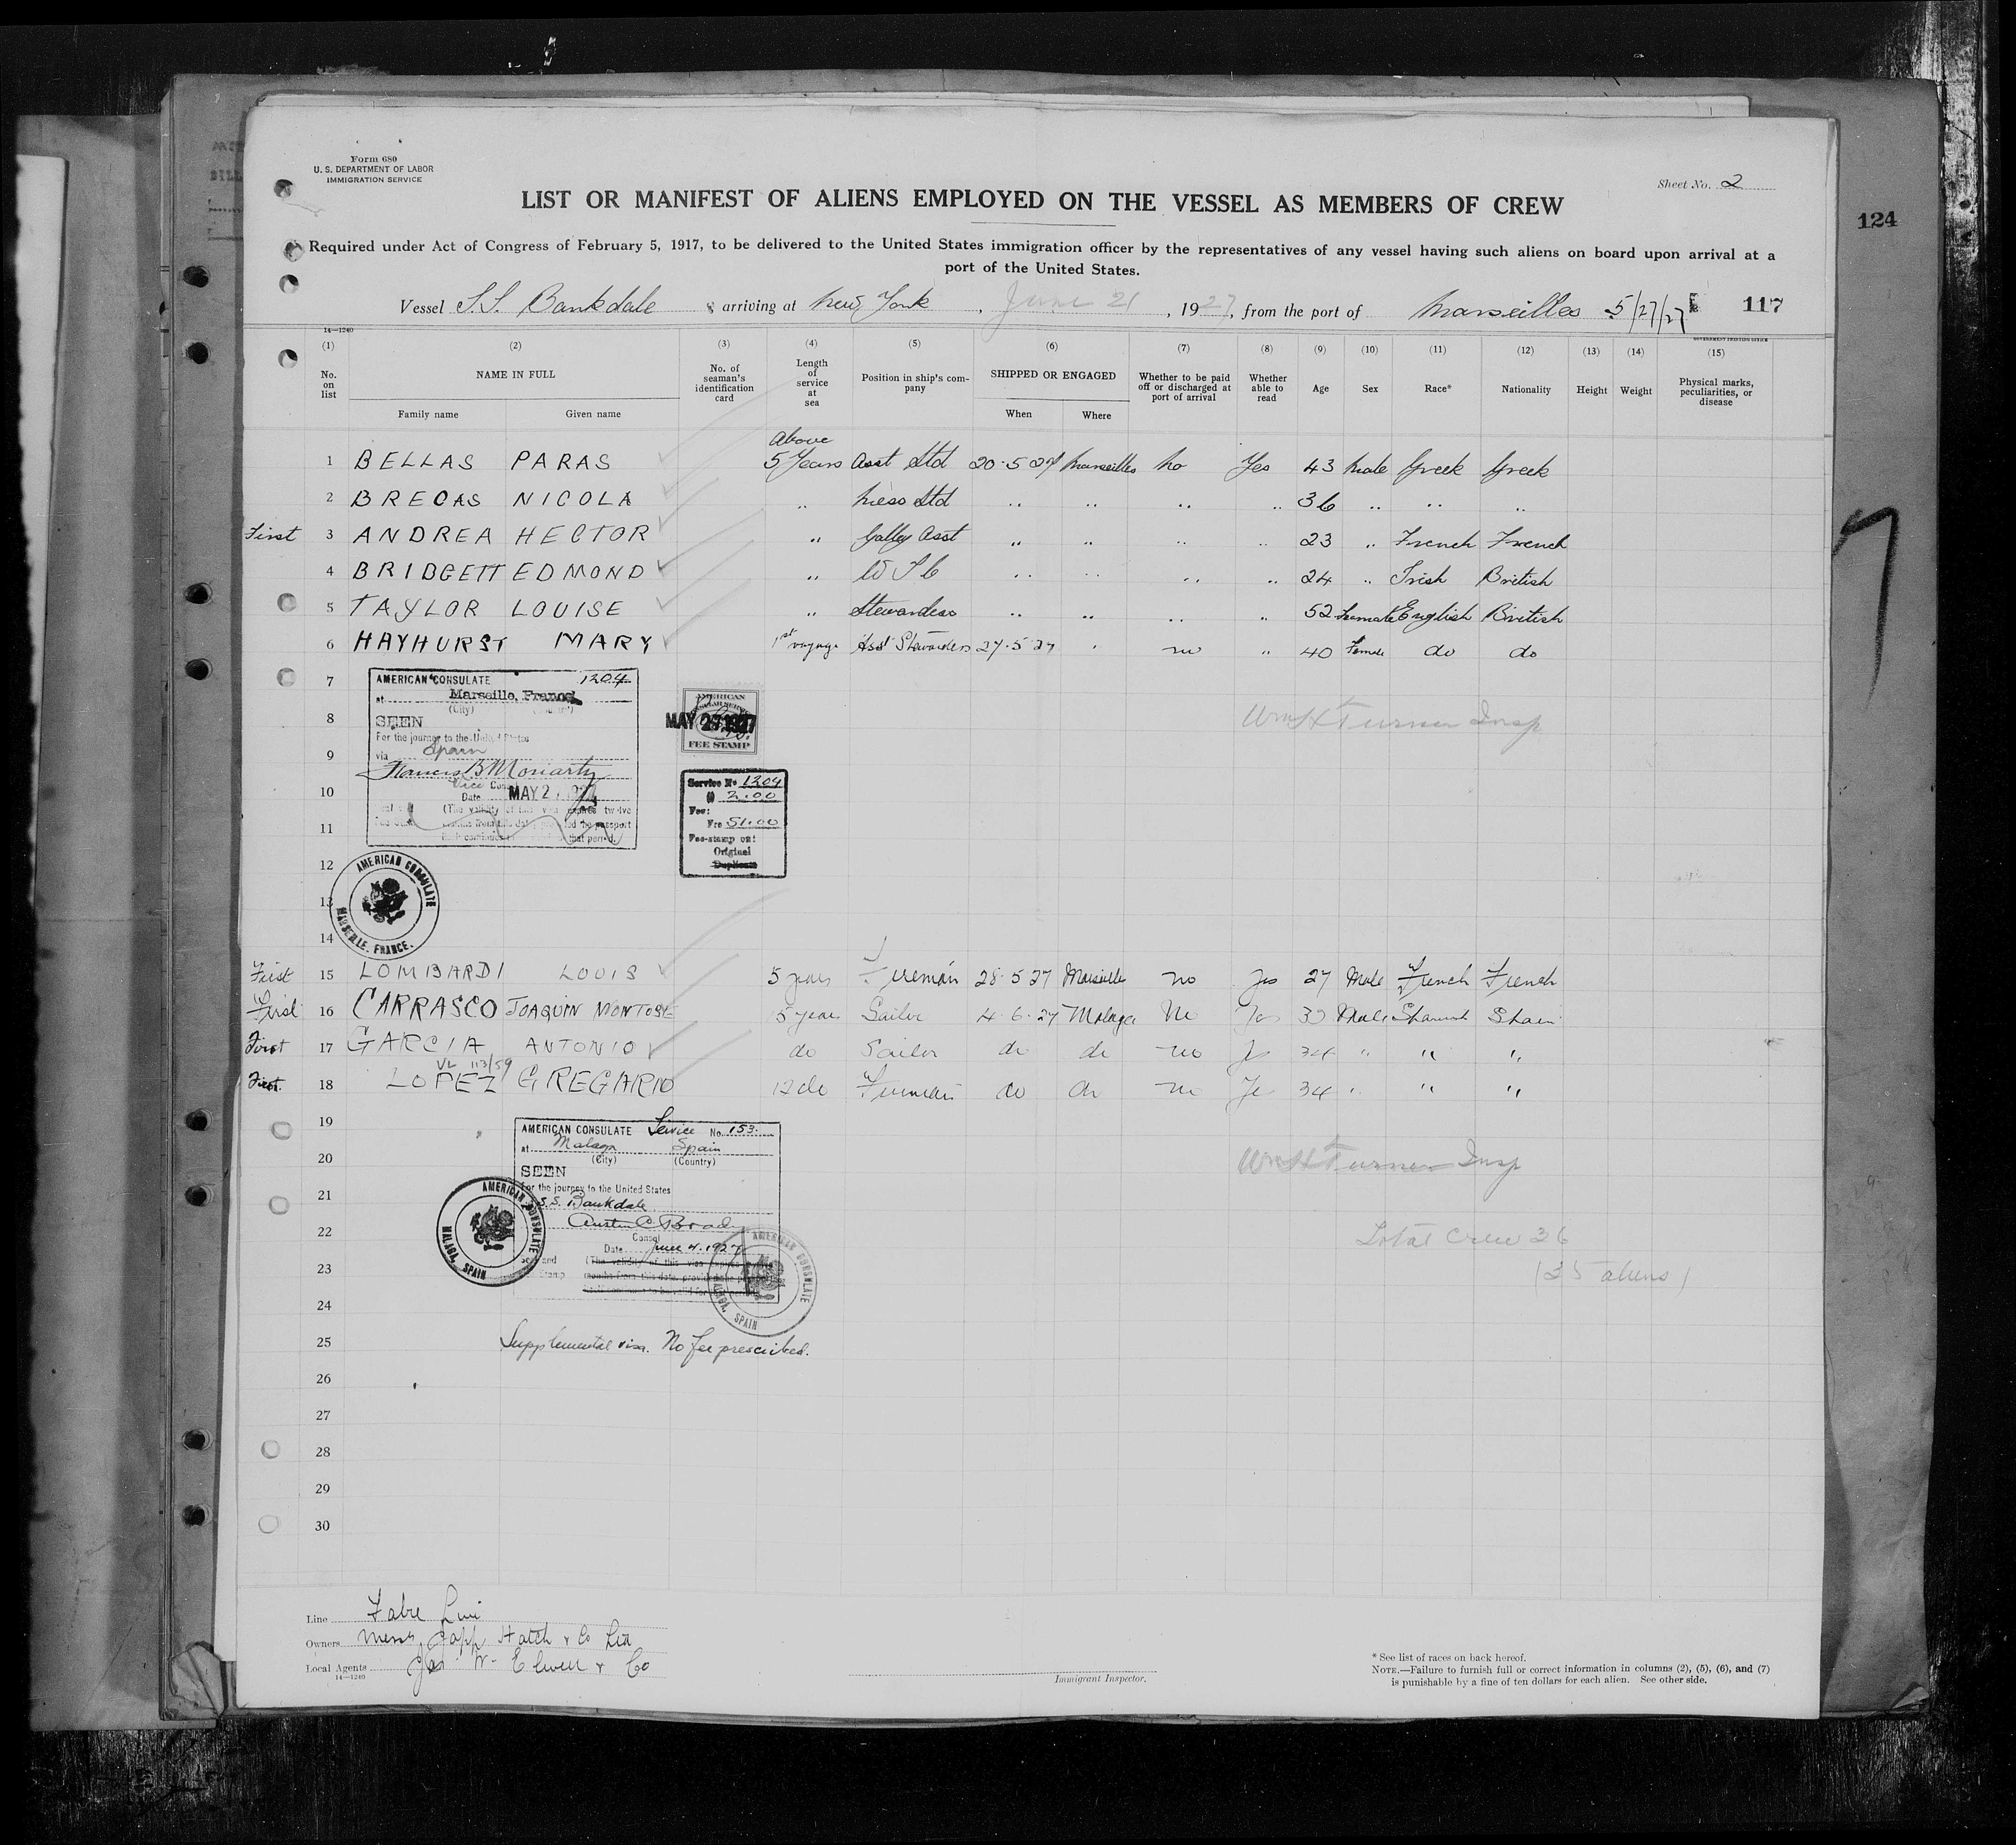 Form 680
U. S. DEPARTMENT OF LABOR
IMMIGRATION SERVICE
Sheet No. 2
LIST OR MANIFEST OF ALIENS EMPLOYED ON THE VESSEL AS MEMBERS OF CREW
124
Required under Act of Congress of February 5, 1917, to be delivered to the United States immigration officer by the representatives of any vessel having such aliens on board upon arrival at a
port of the United States.
Vessel S.S. Bankdale arriving at New York, June 21, 1927, from the port of Marseilles 5/27/27 117
14—1240
GOVERNMENT PRINTING OFFICE
(1) (2) (3) (4) (5) (6) (7) (8) (9) (10) (11) (12) (13) (14) (15)
No. on list NAME IN FULL Family name Given name No. of seaman's identification card Length of service at sea Position in ship's company SHIPPED OR ENGAGED When Where Whether to be paid off or discharged at port of arrival Whether able to read Age Sex Race* Nationality Height Weight Physical marks, peculiarities, or disease
Above
1 BELLAS PARAS 5 Years Asst Std 20.5.27 Marseilles No Yes 43 Male Greek Greek
2 BRECAS NICOLA " Mess Std " " " " 36 " " "
First 3 ANDREA HECTOR " Galley Asst " " " " 23 " French French
4 BRIDGETT EDMOND " " " " " 24 " Irish British
5 TAYLOR LOUISE " Stewardess " " " " 52 Female English British
6 HAYHURST MARY 1st voyage Asst Stewardess 27.5.27 " no " 40 Female do do
7
AMERICAN CONSULATE 1204
at Marseille, France
(City)
8
SEEN
For the journey to the United States
9
via Spain
Francis B Moriarty
Vice Con
10
Date MAY 2
(The validity of this visa expires twelve
11
AMERICAN CONSULAR SERVICE
MAY 27 1927
FEE STAMP
Wm H Turner Insp
Service No 1204
@ 2.00
Fee:
Frs 51.00
Fee-stamp on:
Original
Duplicate
12
AMERICAN CONSULATE
MARSEILLE, FRANCE.
13
14
First 15 LOMBARDI LOUIS 5 years Fireman 28.5.27 Marseille no Yes 27 Male French French
First 16 CARRASCO JOAQUIN 5 year Sailor 4.6.27 Malaga No Yes Male Spanish Spain
First 17 GARCIA ANTONIO do Sailor do do no Ys 34 " " "
VL 113/59
First 18 LOPEZ GREGARIO 12 do Fireman do do no Ye 34 " " "
19
AMERICAN CONSULATE Service No. 153.
at Malaga Spain
(City) (Country)
20
SEEN
Wm H Turner Insp
For the journey to the United States
21
S.S. Bankdale
Austin C. Brady
22
Consul
Date June 4. 1927
Total Crew 36
23
(The validity of this visa
(35 aliens)
AMERICAN CONSULATE
MALAGA, SPAIN
AMERICAN CONSULATE
MALAGA, SPAIN
24
25 Supplemental visa. No fee prescribed.
26
27
28
29
30
Line Fabre Line
Owners Mess Japp Hatch & Co Ltd
Local Agents Jas W. Elwell & Co
14—1240
Immigrant Inspector.
* See list of races on back hereof.
NOTE.—Failure to furnish full or correct information in columns (2), (5), (6), and (7)
is punishable by a fine of ten dollars for each alien. See other side.